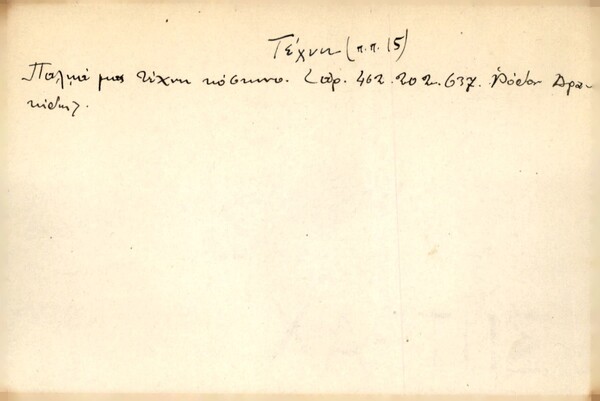 Τέχνη (π.π. 15)
Παλιά μας τέχνη κόσκινο. Λαρ. 462. 202. 637. Ρόδον Δρα-
κίδης.